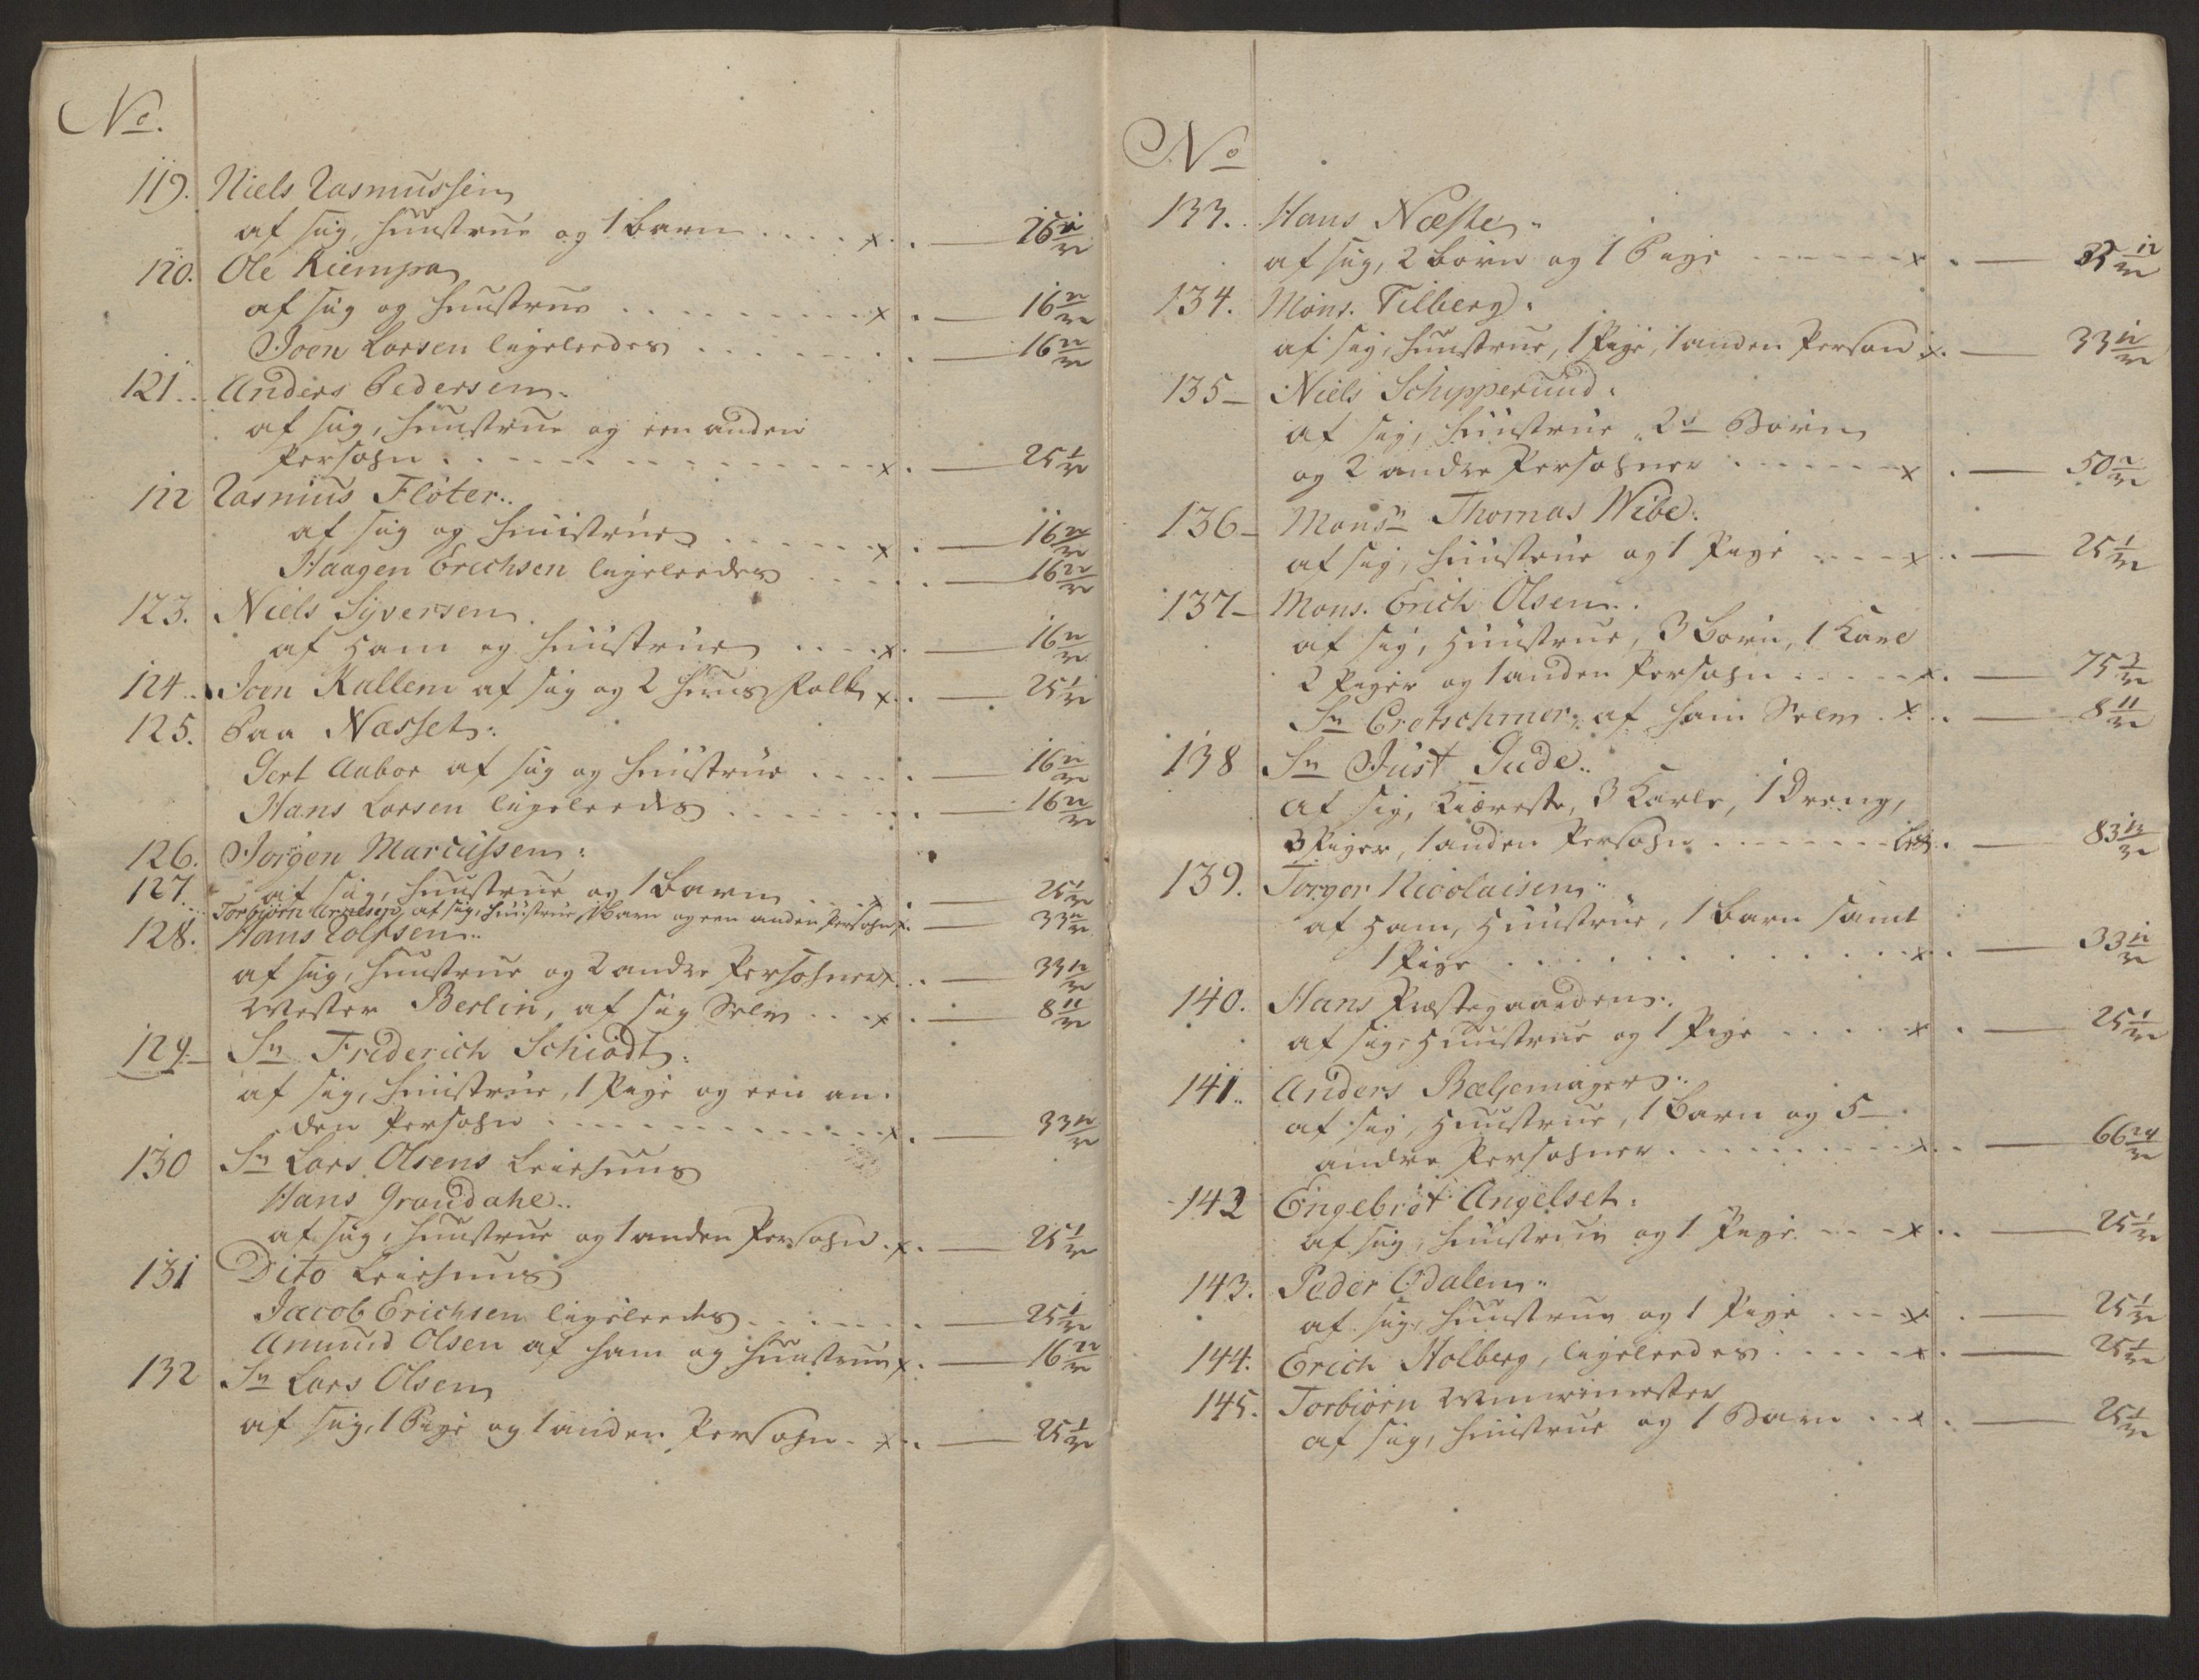 No.
119. Niels Rasmussen
af sig, huustrue og 1 barn . . . . x . . — 25 1/32
120. Ole Kiempa
af sig og huustrue . . . . . . . . x . — 16 22/32
Joen Larsen ligeleedes . . . . . . . — 16 22/32
121. Anders Pedersen.
af sig, huustrue og een anden
Persohn . . . . . . . . . . . x . — 25 1/32
122 Rasmus Flöter..
af sig og huustrue . . . . . . x . — 16 22/32
Haagen Erichsen ligeleedes . . . . . — 16 22/32
123. Niels Syversen.
af ham og huustrue . . . . x . — 16 22/32
124.. Joen Kallem af sig og 2 huus Folk x . . — 25 1/32
125. Paa Næsset:
Gert Aaboe af sig og huustrue . . . . . — 16 22/32
Hans Larsen ligeleedes . . . . . . . — 16 22/32
126. Jörgen Marcussen:
af sig, huustrue og 1 barn . . . x . — 25 1/32
127. Torbiörn Arnelsen, af sig, huustrue, 1 Barn og een anden Persohn x. — 33 12/32
128. Hans Rolfsen..
af sig, huustrue og 2 andre Persohner x . . — 33 12/32
Mester Berlin, af sig Selv . . . x . — 8 11/32
129. Sr Friderich Schiödt:
af sig, huustrue, 1 Pige og een an-
den Persohn . . . . . . . . . . x . — 33 12/32
130 Sr Lars Olsens Leiehuus
Hans Grondahl..
af sig, huustrue og 1 anden Persohn . x . — 25 1/32
131 Dito Leiehuus
Jacob Erichsen ligeleedes . . . . . . — 25 1/32
Amund Olsen af ham og huustrue x . — 16 22/32
132 Sr Lars Olsen
af sig, 1 Pige og 1 anden Persohn . x . . — 25 1/32
No
133. Hans Næste.
af sig, 2 börn og 1 Pige . . . . . . x . — 33 12/32
134. Mons. Filberg.
af sig, huustrue, 1 Pige, 1 anden Person x . — 33 12/32
135 — Niels Schipperund:
af sig, huustrue, 2de Börn
og 2 andre Persohner . . . . . . x . — 50 2/32
136 — Monsr Thomas Wibe.
af sig, huustrue og 1 Pige . . . . x . . — 25 1/32
137 — Mons. Erich Olsen..
af sig, Huustrue, 3 Börn, 1 Karl
2 Piger og 1 anden Persohn . . . . . x . — 75 3/32
Sr Cretschmer, af ham Selv . x . . — 8 11/32
138 Sr Just Gude..
af sig, Kiæreste, 3 Karle, 1 Dreng,
3 Piger, 1 anden Persohn . . . . . . . — 83 13/32
139. Torger Nicolaisen..
af ham, Huustrue, 1 Barn samt
1 Pige . . . . . . . . . . . x . . — 33 12/32
140. Hans Præstegaarden..
af sig, Huustrue og 1 Pige . . . . . x . — 25 1/32
141.. Anders Bælgemager..
af sig, Huustrue, 1 Barn og 5 —
andre Persohner . . . . . . . . . x . . — 66 24/32
142 Engebret Angelset:
af sig, huustrue og 1 Pige . . . x . . — 25 1/32
143. Peder Odalen..
af sig huustrue og 1 Pige . . . x . — 25 1/32
144. Erich Holberg, ligeleedes . . . . . x . — 25 1/32
145. Torbiörn Muurmester
af sig, huustrue og 1 Barn . . x . — 25 1/32